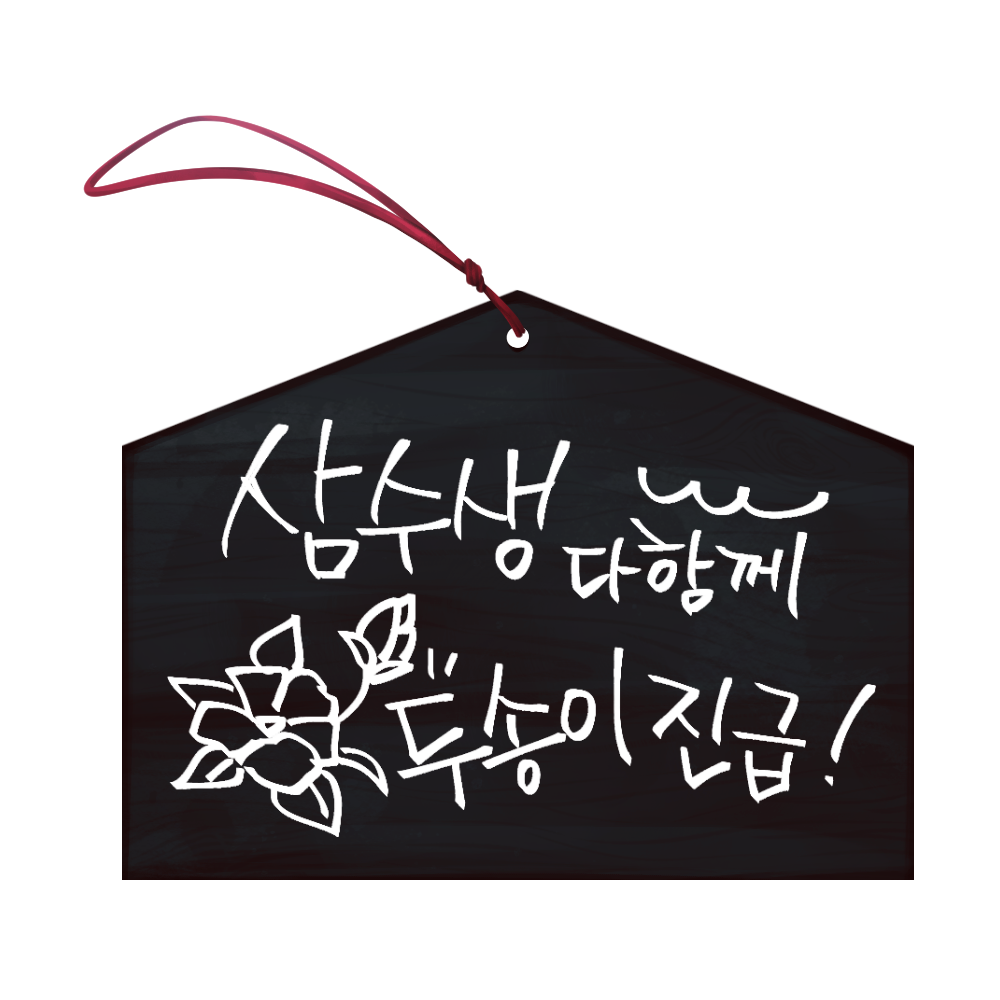 삼수생 다함께
두송이 진급!